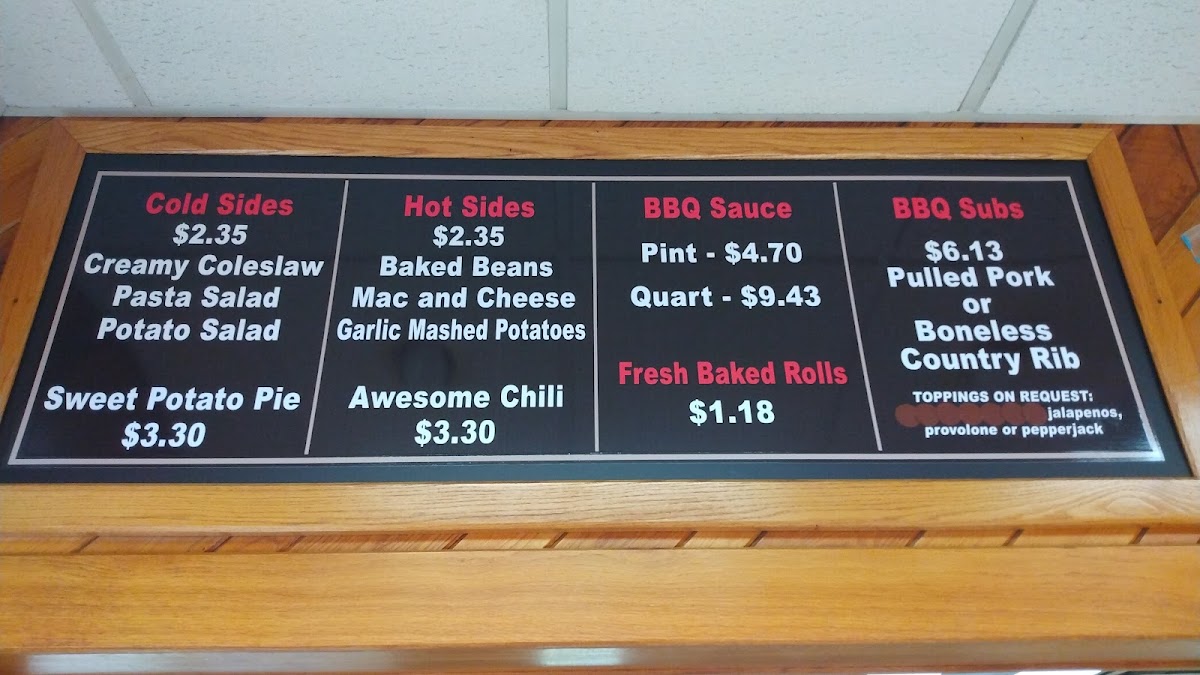 Cold Sides
$2.35
Creamy Coleslaw
Pasta Salad
Potato Salad
Sweet Potato Pie
$3.30
Hot Sides
$2.35
Baked Beans
Mac and Cheese
Garlic Mashed Potatoes
Awesome Chili
$3.30
BBQ Sauce
Pint - $4.70
Quart - $9.43
Fresh Baked Rolls
$1.18
BBQ Subs
$6.13
Pulled Pork
or
Boneless
Country Rib
TOPPINGS ON REQUEST:
jalapenos,
provolone or pepperjack